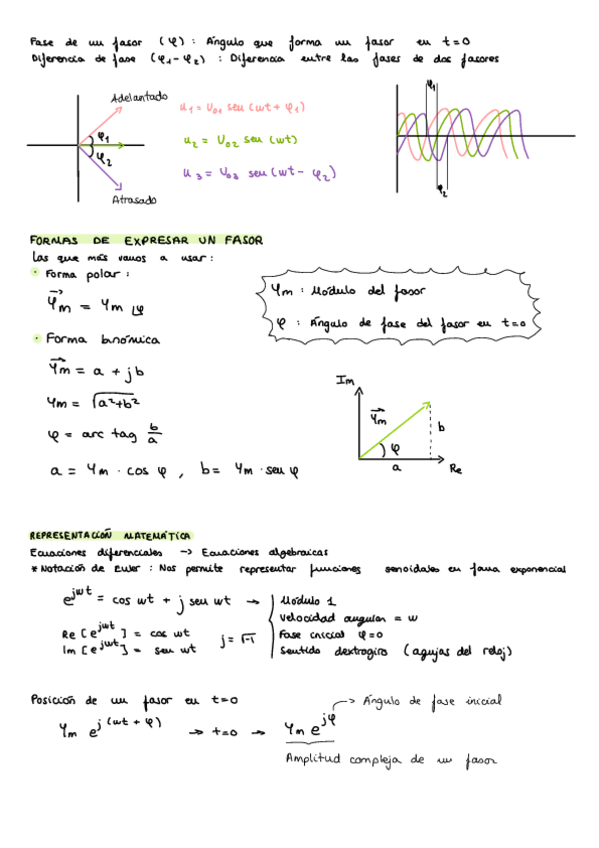 Fase de un fasor (φ) : Ángulo que forma un fasor en t=0
Diferencia de fase (φ₁-φ₂) : Diferencia entre las fases de dos fasores
Adelantado
φ₁
φ₂
Atrasado
u₁ = U₀₁ seu (wt + φ₁)
u₂ = U₀₂ seu (wt)
u₃ = U₀₃ seu (wt - φ₂)
φ₁
φ₂
FORMAS DE EXPRESAR UN FASOR
Las que más vamos a usar:
· Forma polar :
Ym = Ym ∠φ
Ym : Módulo del fasor
φ : Ángulo de fase del fasor en t=0
· Forma binómica
Ym = a + jb
Ym = √a²+b²
φ = arc tag b/a
a = Ym · cos φ , b = Ym · seu φ
Im
Ym
φ
b
a
Re
REPRESENTACIÓN MATEMÁTICA
Ecuaciones diferenciales -> Ecuaciones algebraicas
* Notación de Euler : Nos permite representar funciones senoidales en forma exponencial
e^jwt = cos wt + j seu wt ->
Módulo 1
Velocidad angular = w
Fase inicial φ=0
Sentido dextrogiro (agujas del reloj)
Re [e^jwt] = cos wt
Im [e^jwt] = seu wt
j = √-1
Posición de un fasor en t=0
Ym e^j(wt + φ) -> t=0 -> Ym e^jφ
-> Ángulo de fase inicial
Amplitud compleja de un fasor